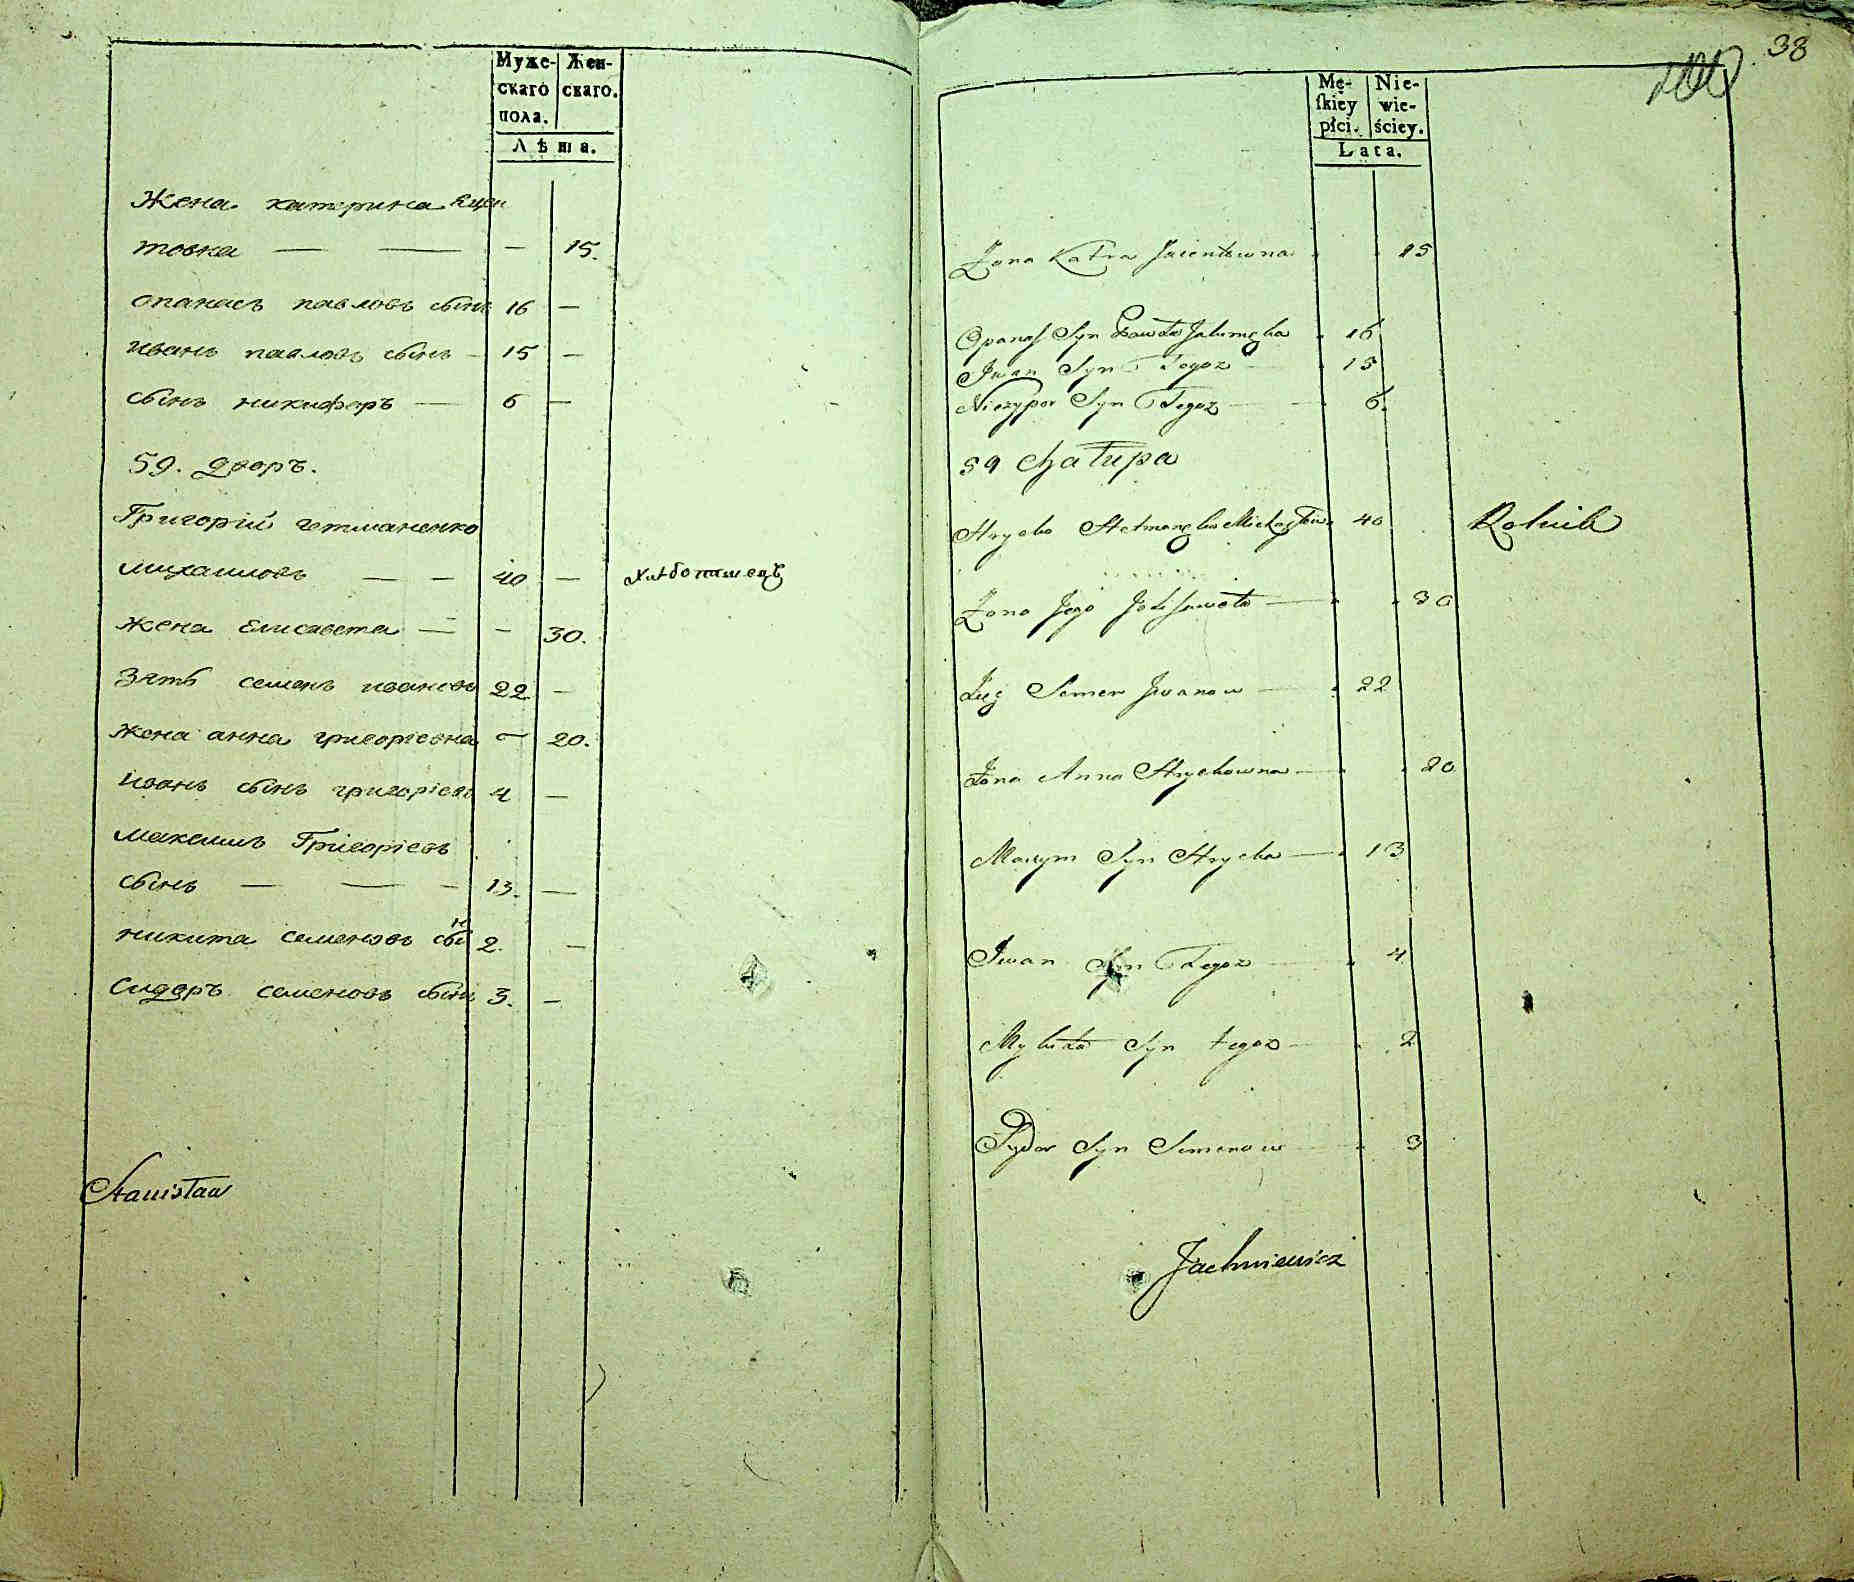 Муже-
скаго
пола.
Жен-
скаго.
Лѣта.
Жена катерина Яцен
товна — — — 15.
опанасъ павловъ сынъ 16 —
иванъ павловъ сынъ — 15 —
сынъ никифоръ — 6 —
59. дворъ.
Григорій гетманенко
михаиловъ — — 40 — хлѣбопашецъ
жена Елисавета — — 30.
зять семенъ ивановъ 22 —
жена анна григорїевна — 20.
иванъ сынъ григорїевъ 4 —
максимъ Григорїевъ
сынъ — — — 13. —
никита семеновъ сынъ 2. —
Сидоръ семеновъ сынъ 3. —
Stanisław
38
Mę-
ſkiey
płci.
Nie-
wie-
ściey.
Lata.
Żona Katra Jacentowna 15
Opanas Syn Pawła 16
Jwan Syn Tegoż 15
Niczypor Syn Tegoż 6.
59 Chałupa
Hrycko Michayłow 40 Rolnik
Żona Jego 30
Semen Jwanow 22
Żona Anna Hryckowna 20
Maxym Syn Hrycka 13
Jwan Syn Tegoż 4
Mykita Syn tegoż 2
Sydor Syn Semenow 3
Jachniewicz